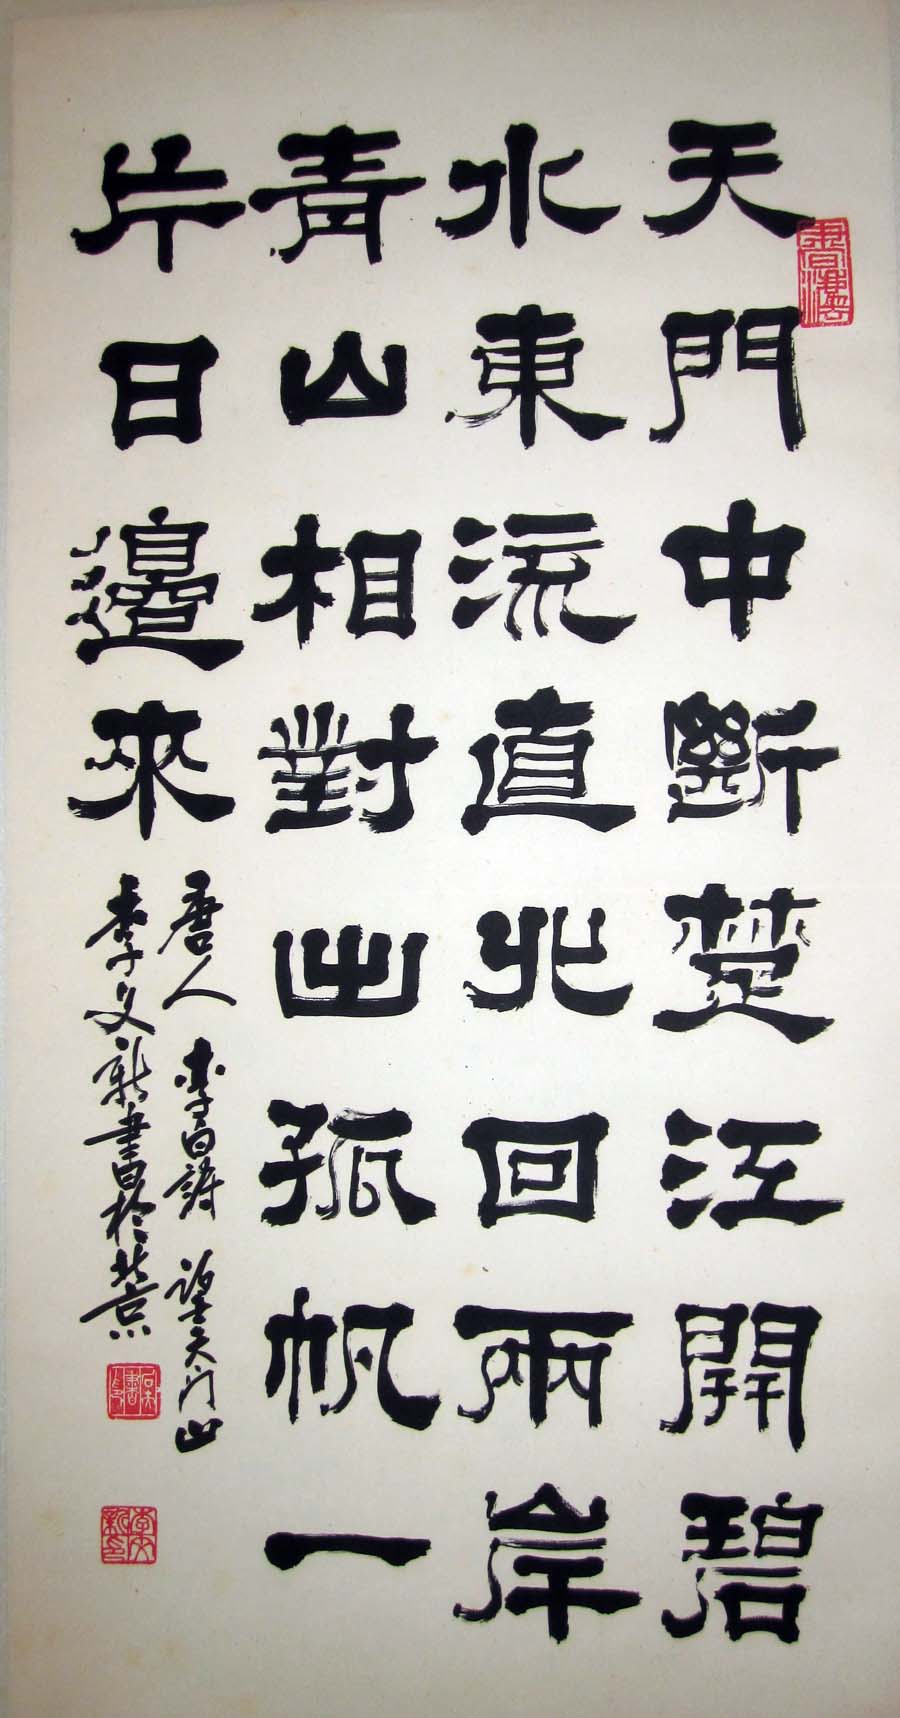 天門中斷楚江開碧
水東流直北回兩岸
青山相對出孤帆一
片日邊來
唐人李白詩望天门山
李文新書於北京